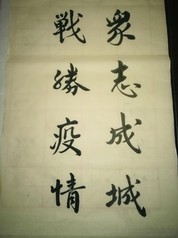 衆志成城
戦勝疫情